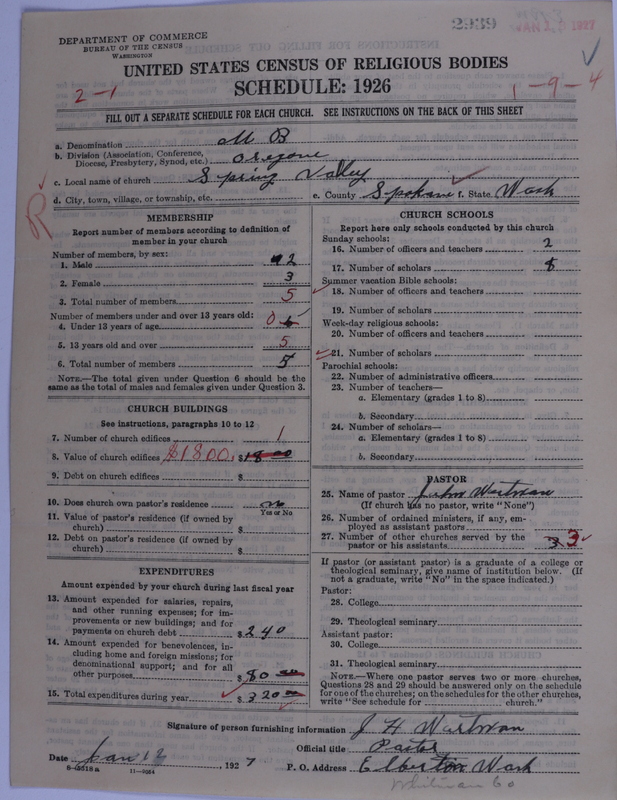 DEPARTMENT OF COMMERCE
BUREAU OF THE CENSUS
WASHINGTON
2939
JAN 1927
UNITED STATES CENSUS OF RELIGIOUS BODIES
SCHEDULE: 1926
2-1
1-9-4
FILL OUT A SEPARATE SCHEDULE FOR EACH CHURCH. SEE INSTRUCTIONS ON THE BACK OF THIS SHEET
a. Denomination M B
b. Division (Association, Conference, Diocese, Presbytery, Synod, etc.) Oregone
c. Local name of church Spring Valley
d. City, town, village, or township, etc.
e. County Spokane f. State Wash
R
MEMBERSHIP
Report number of members according to definition of
member in your church
Number of members, by sex:
1. Male 2
2. Female 3
3. Total number of members 5
Number of members under and over 13 years old:
4. Under 13 years of age 0
5. 13 years old and over 5
6. Total number of members 5
NOTE.—The total given under Question 6 should be the
same as the total of males and females given under Question 3.
CHURCH BUILDINGS
See instructions, paragraphs 10 to 12
7. Number of church edifices 1
8. Value of church edifices $1800. $ 18 00
9. Debt on church edifices $
10. Does church own pastor's residence no
Yes or No
11. Value of pastor's residence (if owned by
church) $
12. Debt on pastor's residence (if owned by
church) $
EXPENDITURES
Amount expended by your church during last fiscal year
13. Amount expended for salaries, repairs,
and other running expenses; for im-
provements or new buildings; and for
payments on church debt $ 240
14. Amount expended for benevolences, in-
cluding home and foreign missions; for
denominational support; and for all
other purposes $ 80 00
15. Total expenditures during year $ 320 00
CHURCH SCHOOLS
Report here only schools conducted by this church
Sunday schools:
16. Number of officers and teachers 2
17. Number of scholars 8
Summer vacation Bible schools:
18. Number of officers and teachers
19. Number of scholars
Week-day religious schools:
20. Number of officers and teachers
21. Number of scholars
Parochial schools:
22. Number of administrative officers
23. Number of teachers—
a. Elementary (grades 1 to 8)
b. Secondary
24. Number of scholars—
a. Elementary (grades 1 to 8)
b. Secondary
PASTOR
25. Name of pastor John Wartman
(If church has no pastor, write "None")
26. Number of ordained ministers, if any, em-
ployed as assistant pastors
27. Number of other churches served by the
pastor or his assistants 3 3
If pastor (or assistant pastor) is a graduate of a college or
theological seminary, give name of institution below. (If
not a graduate, write "No" in the space indicated.)
Pastor:
28. College
29. Theological seminary
Assistant pastor:
30. College
31. Theological seminary
NOTE.—Where one pastor serves two or more churches,
Questions 28 and 29 should be answered only on the schedule
for one of the churches; on the schedules for the other churches,
write "See schedule for church."
Signature of person furnishing information J H Wartman
Official title Pastor
Date Jan 12 1927
P. O. Address Elberton Wash
Whitman Co